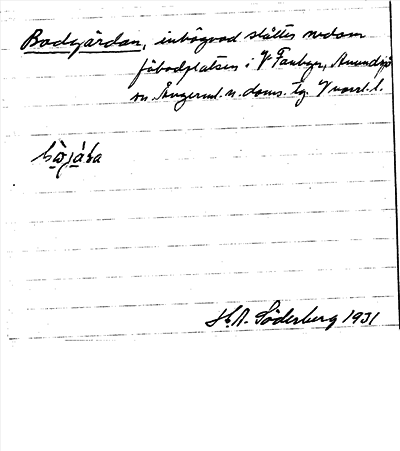 Bodgärdan, inhägnad slåtter nedom
fäbodplatsen i V Fanbyn, Anundsjö
sn. Ångerml. n. doms. tg. V norrl. l.
H. A. Söderberg 1931